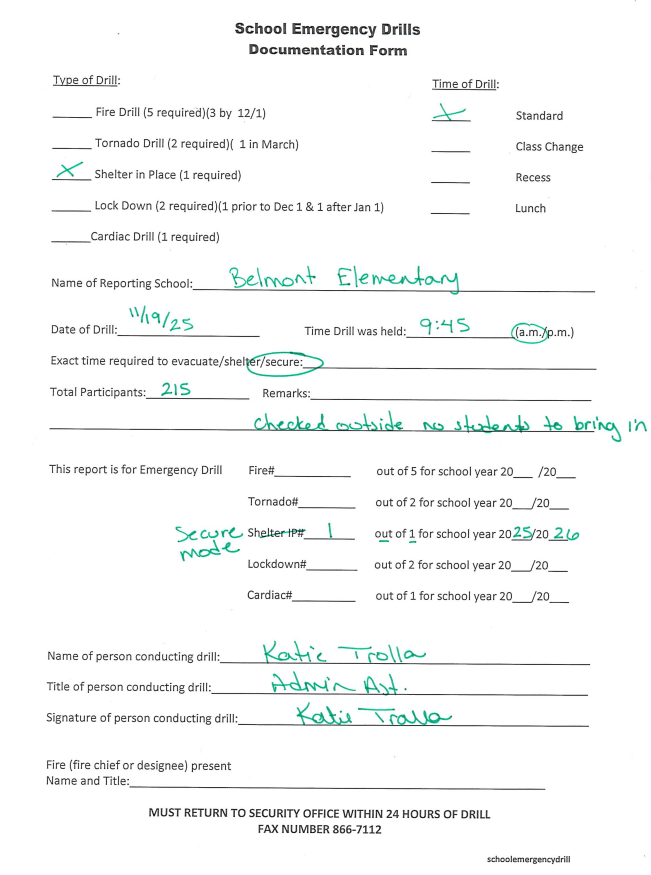 School Emergency Drills
Documentation Form
Type of Drill: Time of Drill:
______ Fire Drill (5 required)(3 by 12/1) X Standard
______ Tornado Drill (2 required)( 1 in March) ______ Class Change
X Shelter in Place (1 required) ______ Recess
______ Lock Down (2 required)(1 prior to Dec 1 & 1 after Jan 1) ______ Lunch
______Cardiac Drill (1 required)
Name of Reporting School: Belmont Elementary
Date of Drill: 11/19/25 Time Drill was held: 9:45 (a.m./p.m.)
Exact time required to evacuate/shelter/secure:
Total Participants: 215 Remarks:
checked outside no students to bring in
This report is for Emergency Drill Fire#______ out of 5 for school year 20___ /20___
Tornado#______ out of 2 for school year 20___/20___
Secure mode Shelter IP# 1 out of 1 for school year 2025/2026
Lockdown#______ out of 2 for school year 20___/20___
Cardiac#______ out of 1 for school year 20___/20___
Name of person conducting drill: Katie Trolla
Title of person conducting drill: Admin Ast.
Signature of person conducting drill: Katie Trolla
Fire (fire chief or designee) present
Name and Title:
MUST RETURN TO SECURITY OFFICE WITHIN 24 HOURS OF DRILL
FAX NUMBER 866-7112
schoolemergencydrill